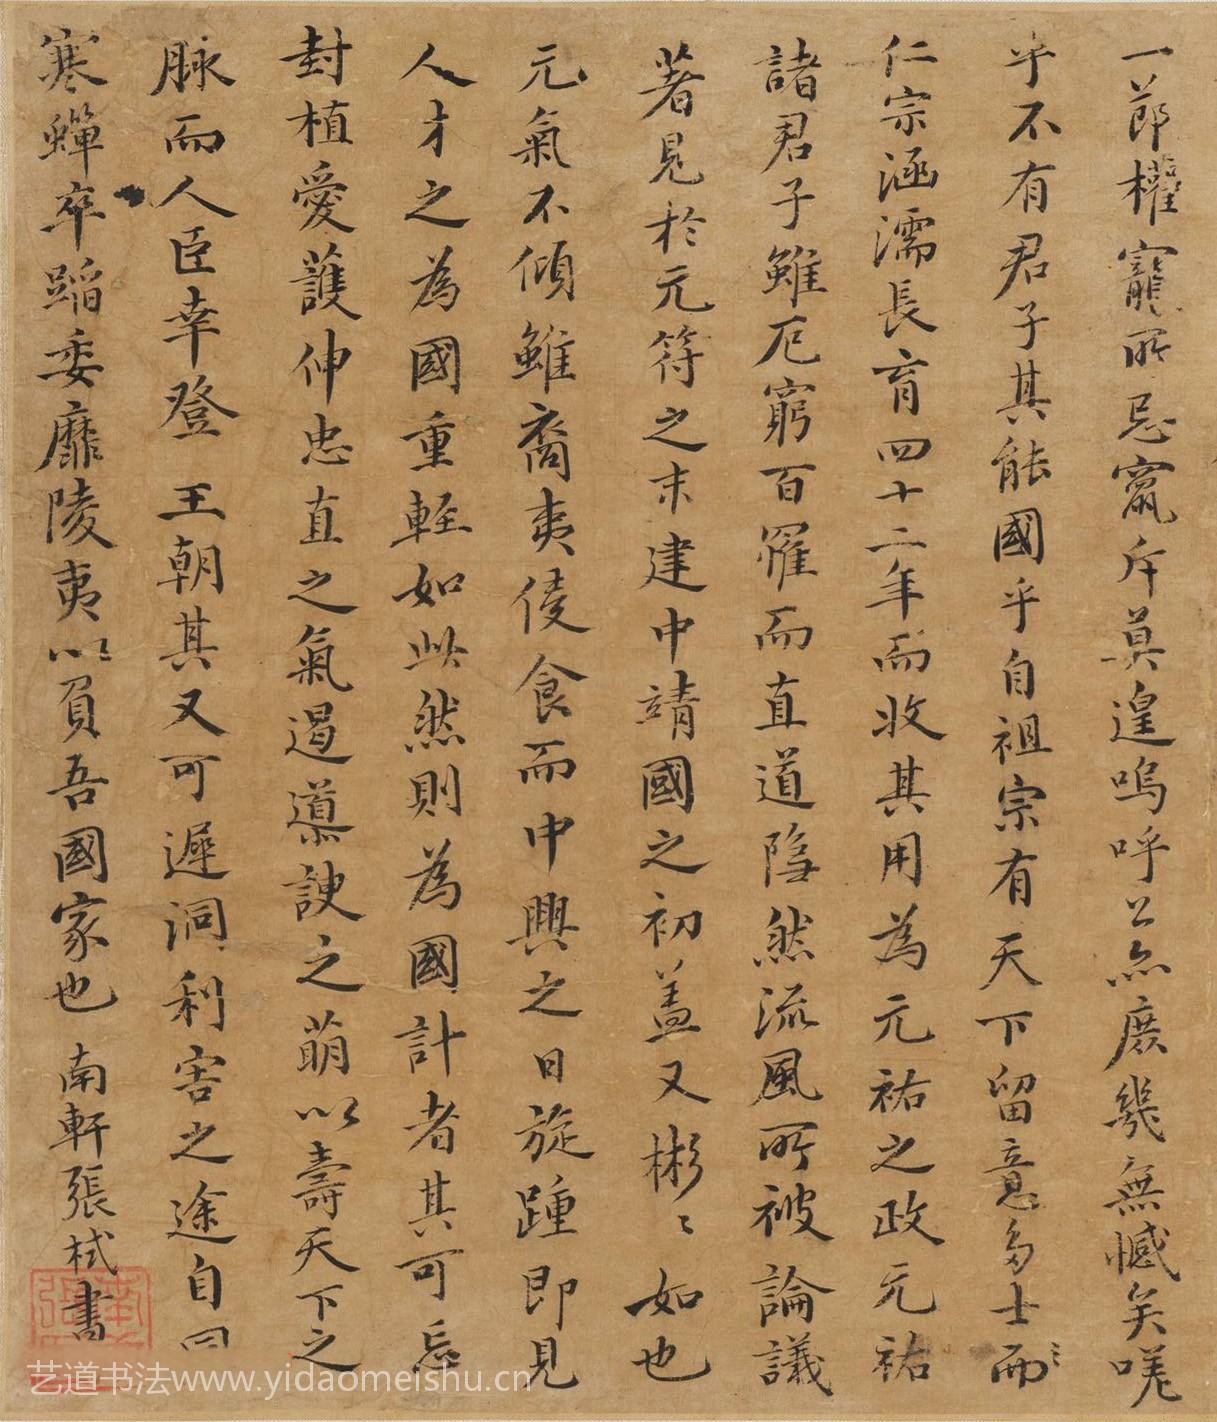 一節權寵所忌竄斥莫遑嗚呼公亦庶幾無憾矣嘆
乎不有君子其能國乎自祖宗有天下留意多士而
仁宗涵濡長育四十二年而收其用為元祐之政元祐
諸君子雖厄窮百罹而直道隱然流風所被論議
著見於元符之末建中靖國之初蓋又彬〻如也
元氣不傾雖裔夷侵食而中興之日旋踵即見
人才之為國重輕如此然則為國計者其可忘
封植愛護伸忠直之氣遏導諛之萌以壽天下之
脉而人臣幸登 王朝其又可遲洄利害之途自同
寒蟬卒蹈委靡陵夷以負吾國家也 南軒張栻書
艺道书法www.yidaomeishu.cn